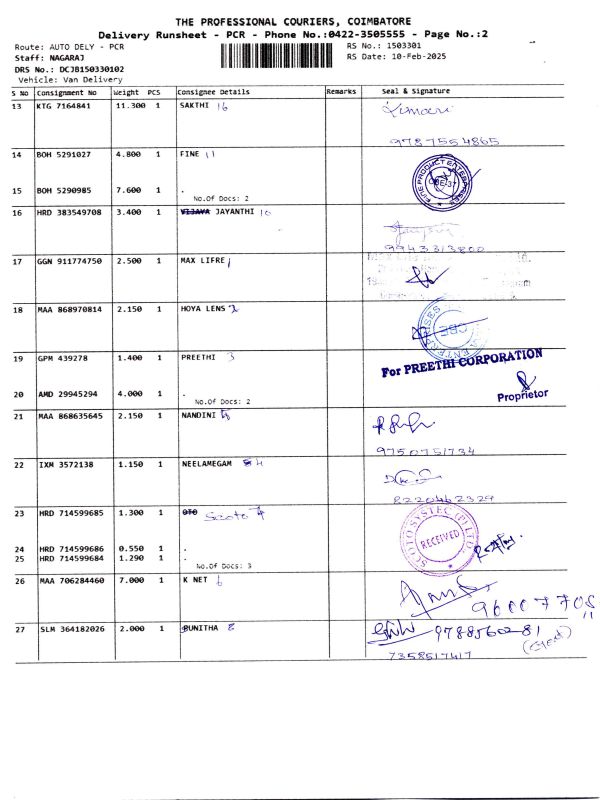 THE PROFESSIONAL COURIERS, COIMBATORE
Delivery Runsheet - PCR - Phone No.:0422-3505555 - Page No.:2
Route: AUTO DELY - PCR
RS No.: 1503301
Staff: NAGARAJ
RS Date: 10-Feb-2025
DRS No.: DCJB150330102
Vehicle: Van Delivery
S No Consignment No Weight PCS Consignee Details Remarks Seal & Signature
13 KTG 7164841 11.300 1 SAKTHI 16
9787554865
14 BOH 5291027 4.800 1 FINE 11
FINE PRODUCT ENTERPRISES
CBE-37
15 BOH 5290985 7.600 1 .
No.Of Docs: 2
16 HRD 383549708 3.400 1 VIJAYA JAYANTHI 10
9943313800
17 GGN 911774750 2.500 1 MAX LIFRE
18 MAA 868970814 2.150 1 HOYA LENS 2
19 GPM 439278 1.400 1 PREETHI 3
For PREETHI CORPORATION
20 AMD 29945294 4.000 1 .
Proprietor
No.Of Docs: 2
21 MAA 868635645 2.150 1 NANDINI
9750751734
22 IXM 3572138 1.150 1 NEELAMEGAM 4
8220462329
23 HRD 714599685 1.300 1 OTO Scoto 7
SCOTO SYSTEC (P) LTD
RECEIVED
24 HRD 714599686 0.550 1 .
25 HRD 714599684 1.290 1 .
No.Of Docs: 3
26 MAA 706284460 7.000 1 K NET 6
27 SLM 364182026 2.000 1 PUNITHA 8
7358517417